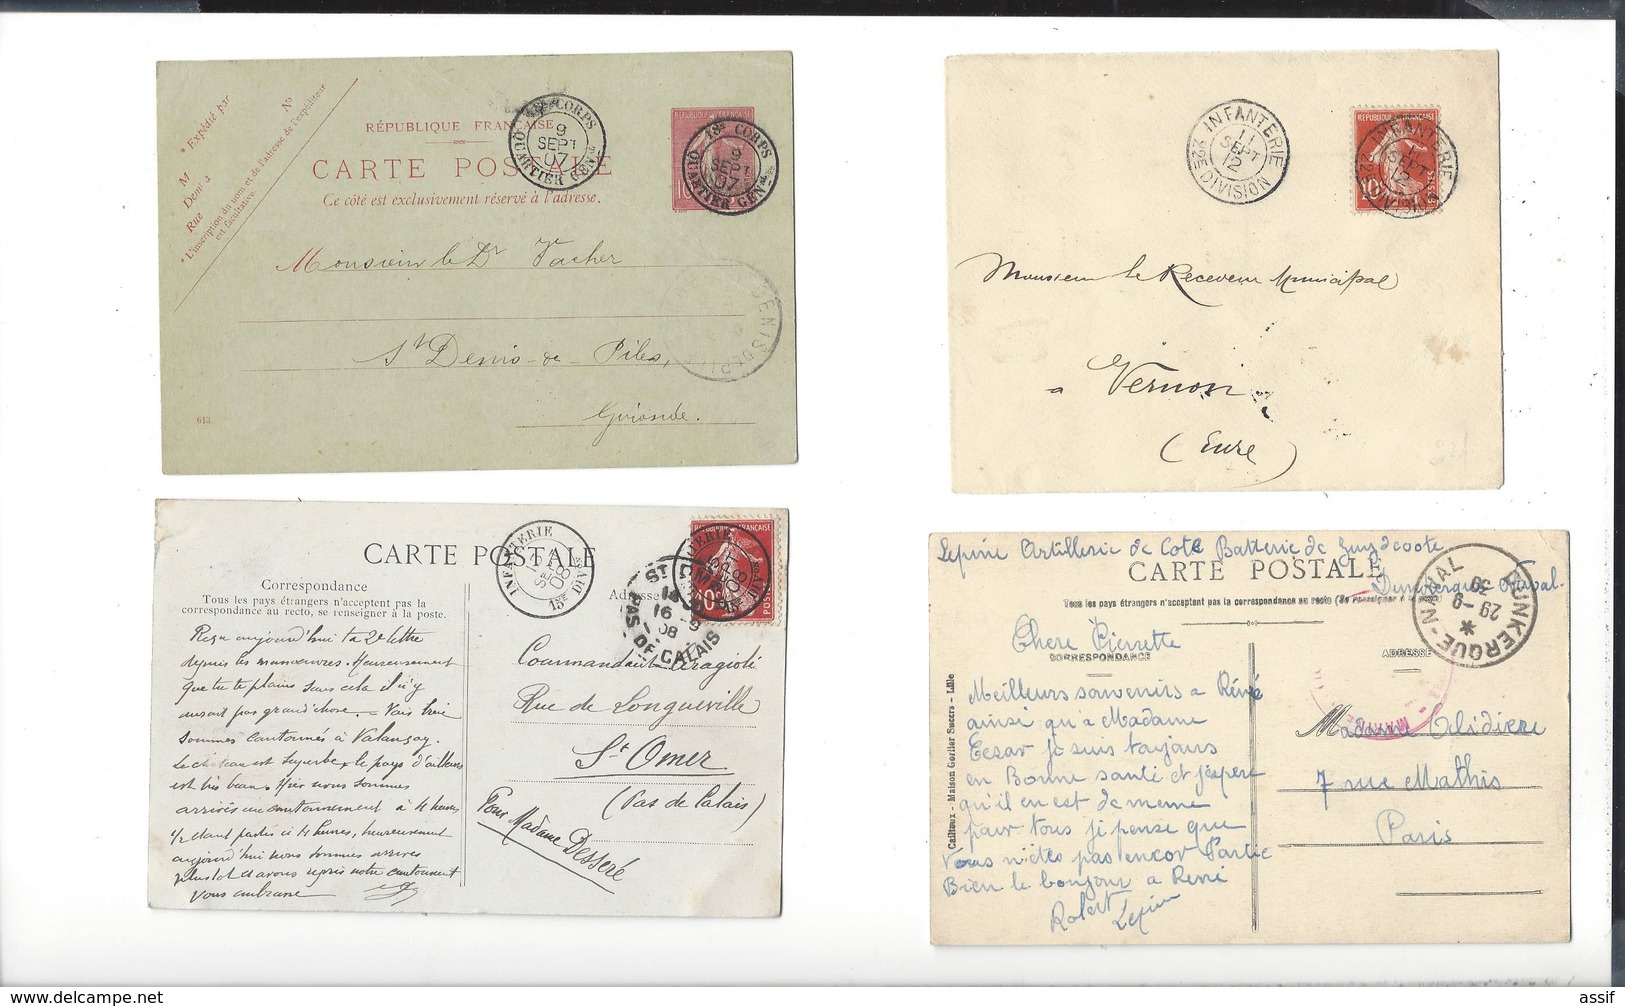 * Expédié par
No
M
Demt à
Rue
* L'inscription du nom et de l'adresse de l'expéditeur
est facultative.
RÉPUBLIQUE FRANÇAISE
CARTE POSTALE
Ce côté est exclusivement réservé à l'adresse.
CORPS
9
SEPT
07
QUARTIER GENAL
18E CORPS
9
SEPT
07
QUARTIER GENAL
Monsieur le Dr Vacher
St Denis-de-Piles,
Gironde.
613
INFANTERIE
11
SEPT
12
22E DIVISION
REPUBLIQUE FRANÇAISE
10c
POSTES
INFANTERIE
SEPT
12
DIVISION
Monsieur le Receveur Municipal
a Vernon
(Eure)
CARTE POSTALE
Correspondance
Tous les pays étrangers n'acceptent pas la
correspondance au recto, se renseigner à la poste.
Adresse
INFANTERIE
SEPT
08
REPUBLIQUE FRANÇAISE
10c
ST OMER
16
08
PAS DE CALAIS
Reçu aujourd'hui ta 2e lettre
depuis les manœuvres. Heureusement
que tu te plains sans cela il n'y
aurait pas grand'chose. - Vais bien
sommes cantonnés à Valançay.
Le chateau est superbe & le pays d'ailleurs
est très beau. Hier nous sommes
arrivés au cantonnement à 4 heures
1/2 étant partis à 4 heures, heureusement
aujourd'hui nous sommes arrivés
plus tôt et avons repris notre cantonnement
Vous embrasse
Commandant
Rue de Longueville
St Omer
(Pas de Calais)
Pour Madame Desseré
Lepine Artillerie de Cote Batterie de Zuydcoote
Dunkerque Naval.
CARTE POSTALE
Tous les pays étrangers n'acceptent pas la correspondance au recto (Se renseigner
DUNKERQUE-NAVAL
29-9
39
CORRESPONDANCE
ADRESSE
Chere Pierrette
Meilleurs souvenirs a Réné
ainsi qu'a Madame
je suis toujours
en Bonne santé et j'espere
qu'il en est de meme
pour tous je pense que
Vous n'êtes pas encor Partie
Bien le bonjour a Réné
Robert Lepine
Madame
7 rue Mathis
Paris
Cailteux - Maison Gorlier Succrs - Lille
assif